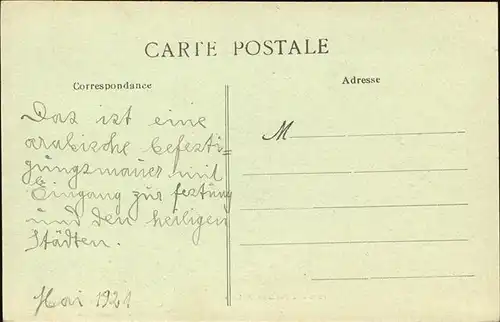 CARTE POSTALE
Correspondance
Adresse
Das ist eine
arabische befesti-
gungsmauer mit
Eingang zur festung
und den heiligen
Städten.
Mai 1921
M